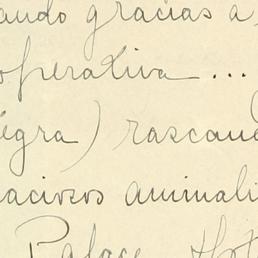 ando gracias a
operativa ...
egra) rascand
aciosos animali
Palace Hot